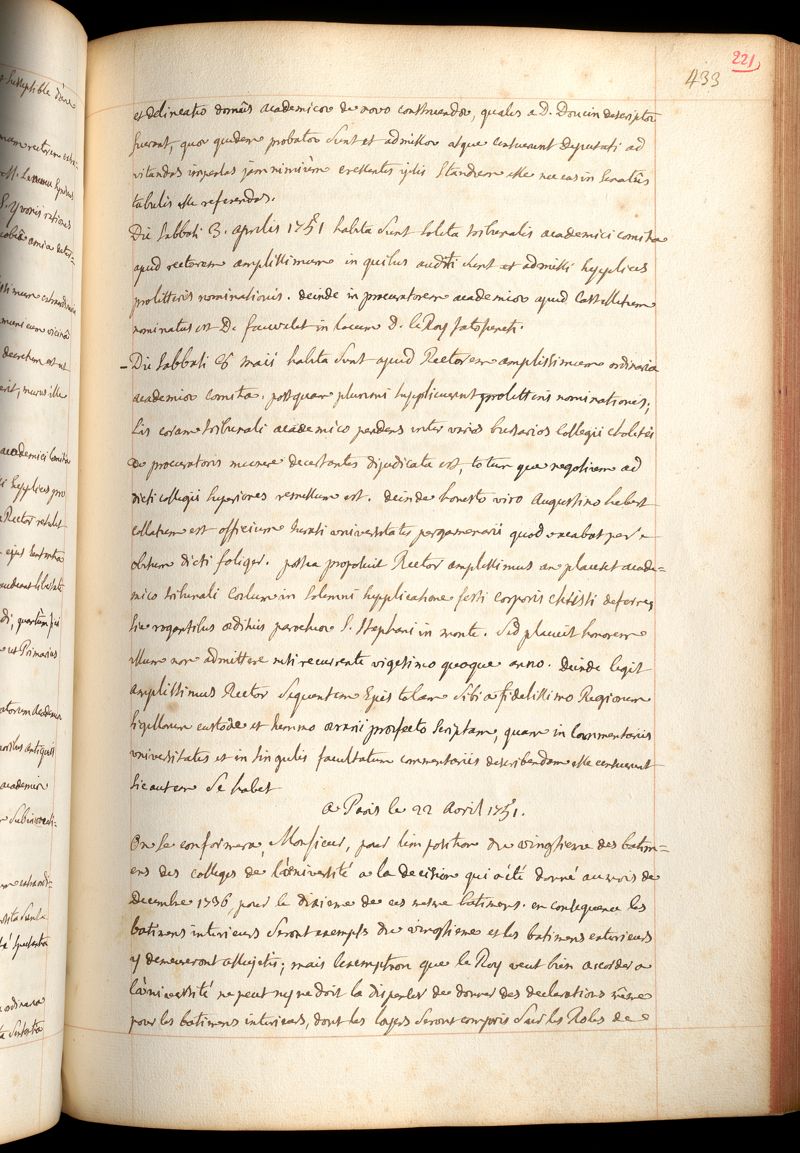 221
433
et delineatio domûs academicæ de novo construendæ, qualis a D. Doucin descriptæ
fuerant, quæ quidem probatæ sunt et admissæ atque censuerunt Deputati ad
vitandas impensas jam nimium crescentes ijsdem standum esse nec eas in
tabulis esse referendas.
Die Sabbati 3. aprilis 1751 habita sunt solita tribunalis academici comitia
apud rectorem amplissimum in quibus auditi sunt et admissi supplices
pro litteris nominationis. deinde in procuratorem academiæ apud Castelletum
nominatus est D. fauvelet in locum D. le Roy
Die Sabbati 8 maii habita sunt apud Rectorem amplissimum ordinaria
academiæ comitia. postquam plurimi supplicuerunt pro litteris nominationis,
Lis coram tribunali academico pendens inter varios bursarios Collegii choletei
de procuratoris munere decertantes dijudicata est, totumque negotium ad
dicti collegii superiores remissum est. deinde honesto viro Augustino hebert
collatum est officium jurati universitatis pergamenarii quod vacabat per
obitum dicti foliger. postea proposuit Rector amplissimus an placeret acade=
mico tribunali coelum in solemni supplicatione festi corporis christi deferre,
sic rogantibus ædituis parochiæ S. Stephani in monte. Sed placuit honorem
illum non admittere nisi recurrente vigesimo quoque anno. Deinde legit
amplissimus Rector sequentem Epistolam sibi a fidelissimo Regiorum
sigillorum custode et summo ærarii præfecto scriptam, quam in Commentariis
universitatis et in singulis facultatum commentariis describendam esse censuerunt
sic autem se habet
A Paris le 22 Avril 1751.
On se conformera, Monsieur, pour l'imposition du vingtieme des batim=
ens des colleges de l'université a la decision qui a été donné au mois de
Decembre 1736, pour le dixieme de ces mesme batimens. en consequence les
batimens interieurs seront exempts du vingtieme et les batimens exterieurs
y demeureront assujetis; mais l'exemption que le Roy veut bien accorder a
l'université ne peut ny ne doit la dispenser de donner des declarations même
pour les batimens interieurs, dont les loyers seront compris sur les Roles de